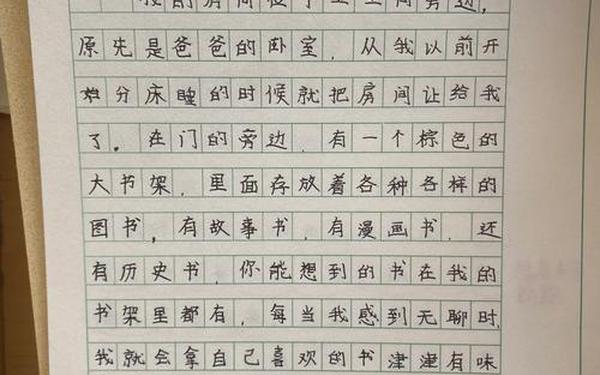 我的房间位于卫生间旁边，
原先是爸爸的卧室，从我以前开
始分床睡的时候就把房间让给我
了。在门的旁边，有一个棕色的
大书架，里面存放着各种各样的
图书，有故事书，有漫画书，还
有历史书，你能想到的书在我的
书架里都有，每当我感到无聊时，
我就会拿自己喜欢的书津津有味